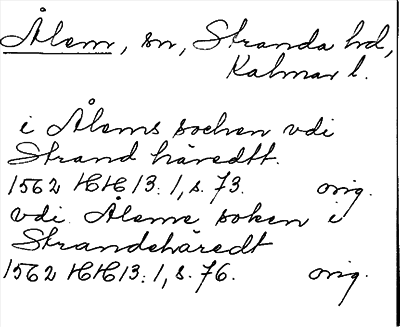 Ålem, sn, Stranda hd,
Kalmar l.
i Ålems sochen vdi
Strand häredtt.
1562 HH 13:1, s. 73. orig.
vdi Ålems soken i
Strandehäredt
1562 HH 13:1, s. 76. orig.